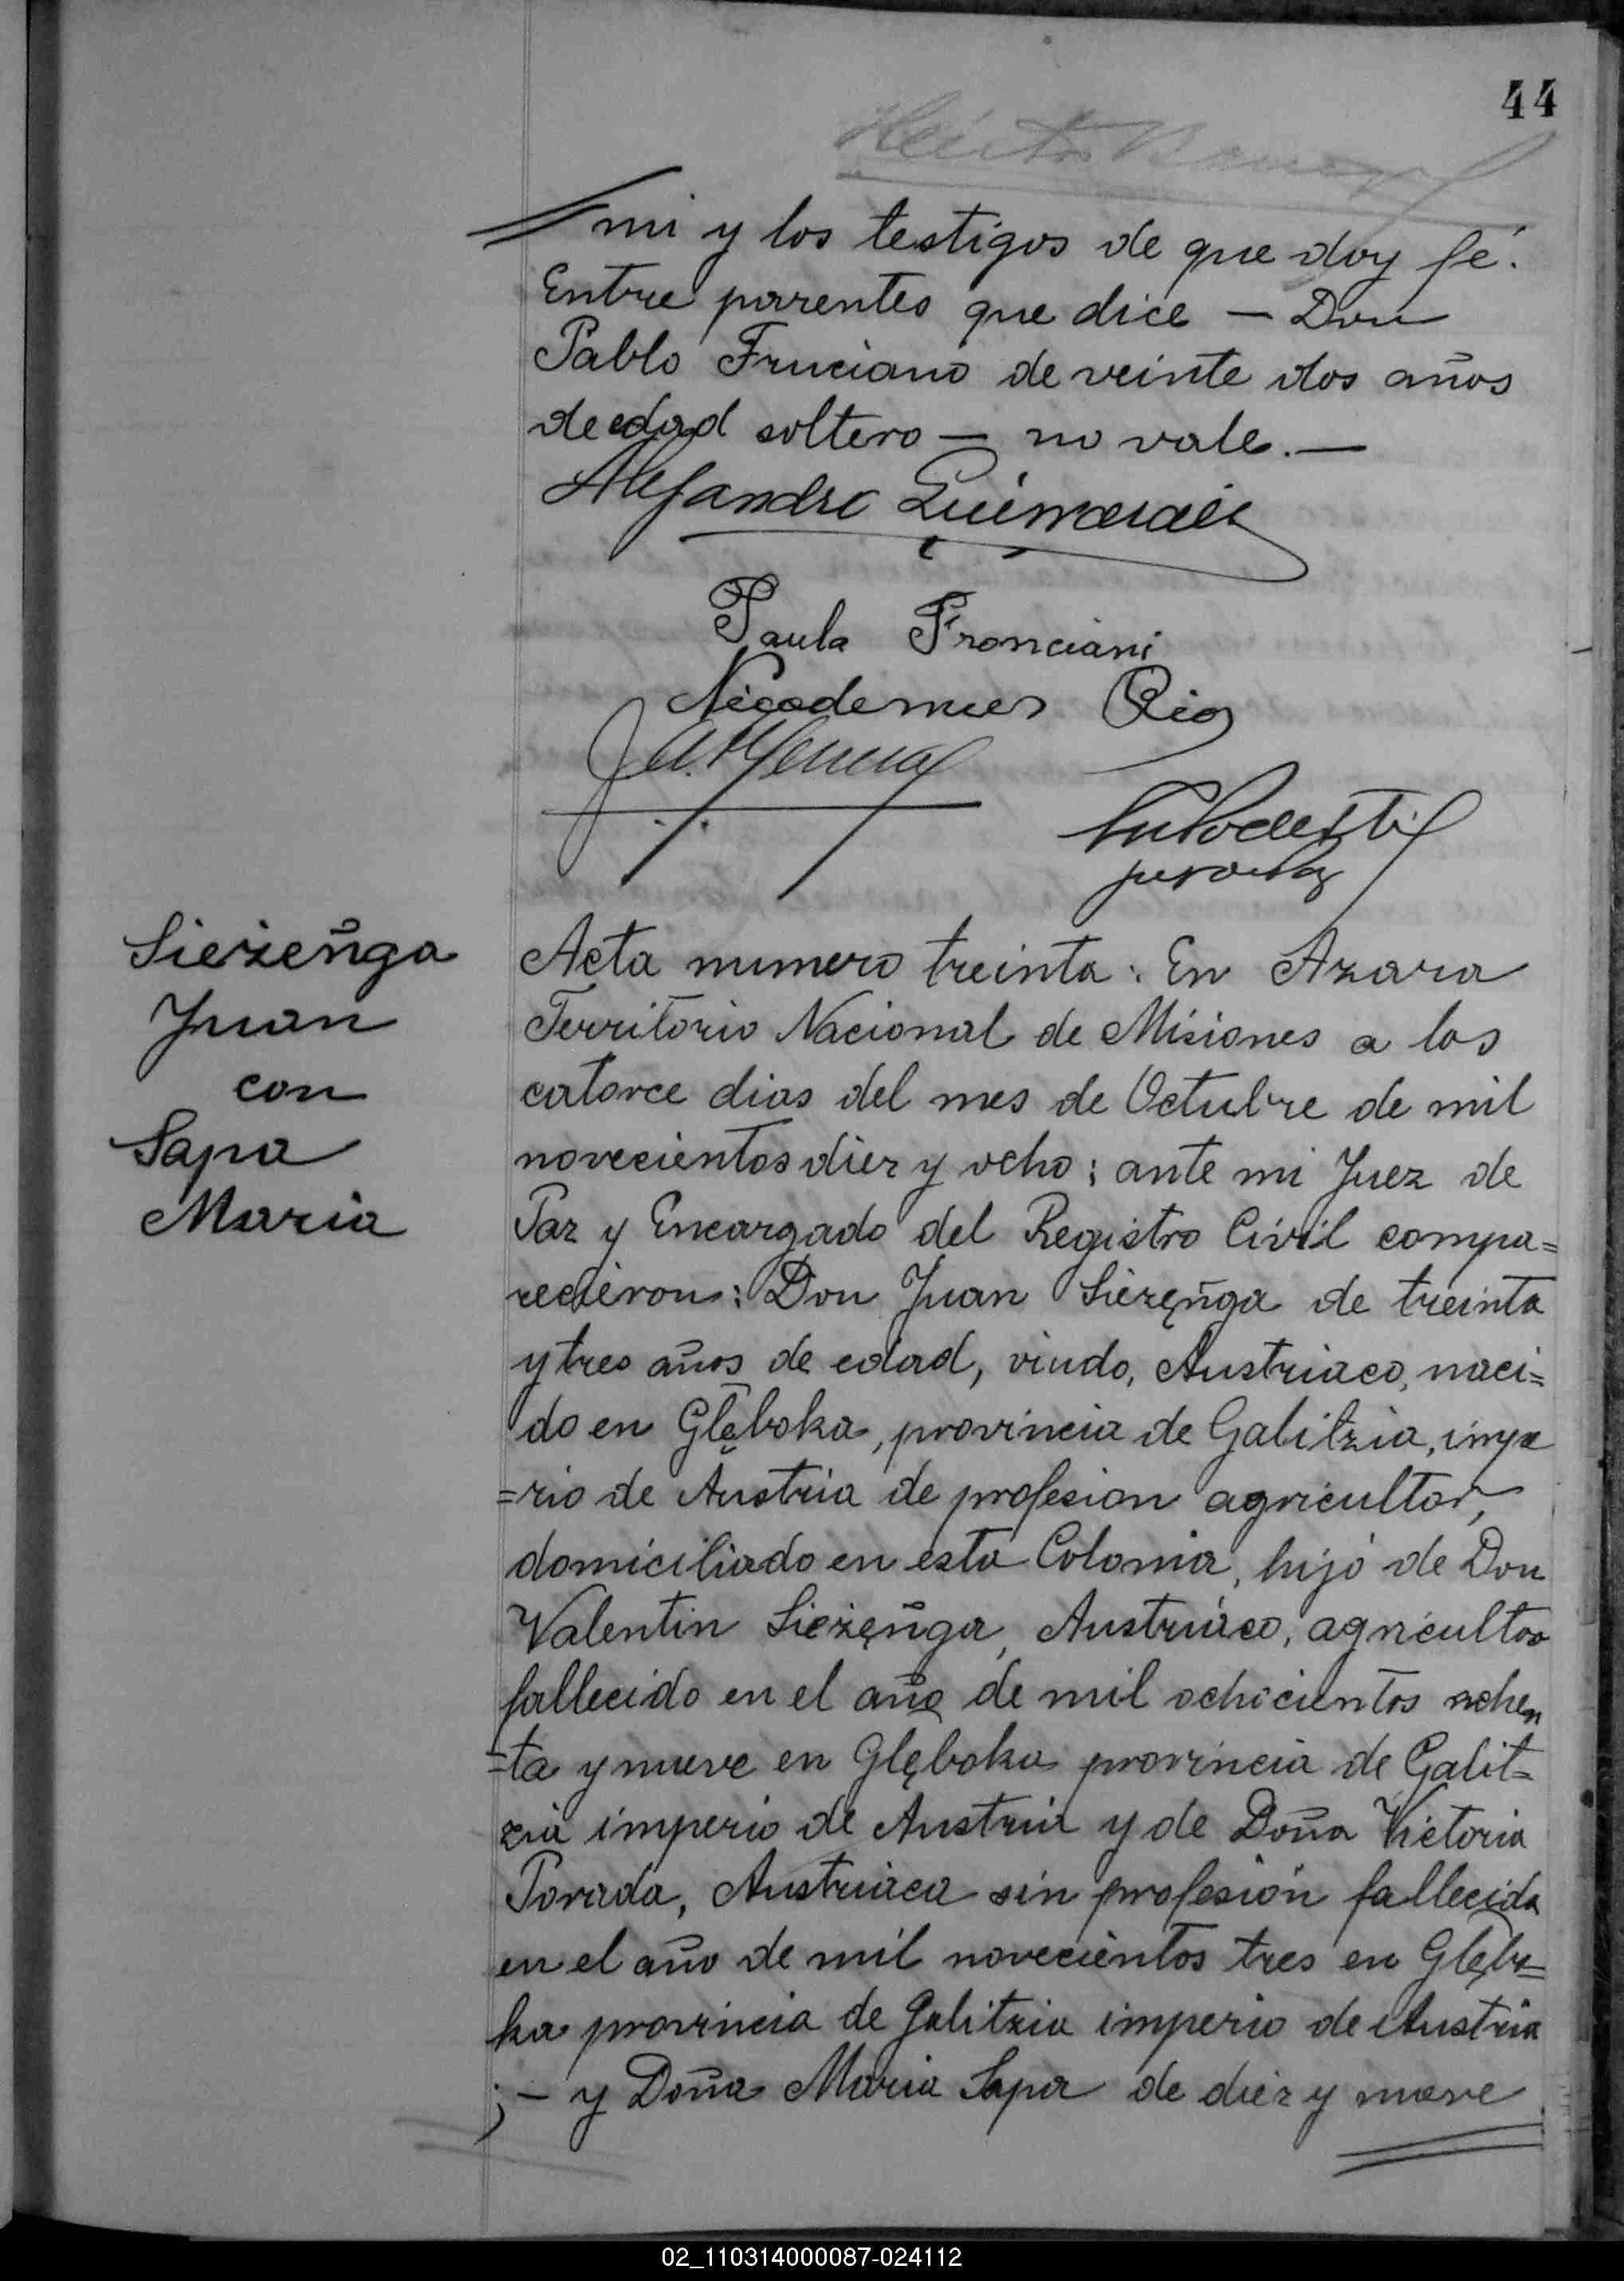 44
mi y los testigos de que doy fé.
Entre parentes que dice — Don
Pablo Fruciano de veinte dos años
de edad soltero — no vale. —
Alejandro
Paula Fronciani
Nicodemues Rios
Siezeñga
Juan
con
Sapa
Maria
Acta numero treinta: En Azara
Territorio Nacional de Misiones a los
catorce dias del mes de Octubre de mil
novecientos diez y ocho; ante mi Juez de
Paz y Encargado del Registro Civil compa=
recieron: Don Juan Siezęñga de treinta
y tres años de edad, viudo, Austriaco, naci=
do en Glęboka, provincia de Galitzia, impe
=rio de Austria de profesion agricultor,
domiciliado en esta Colonia, hijo de Don
Valentin Sieżęñga, Austriaco, agricultor
fallecido en el año de mil ochocientos ochen
=ta y nueve en Glęboka provincia de Galit=
zia imperio de Austria y de Doña Victoria
Porada, Austriaca sin profesión fallecida
en el año de mil novecientos tres en Glębo=
ka provincia de Galitzia imperio de Austria
; — y Doña Maria Sapa de diez y nueve
02_110314000087-024112